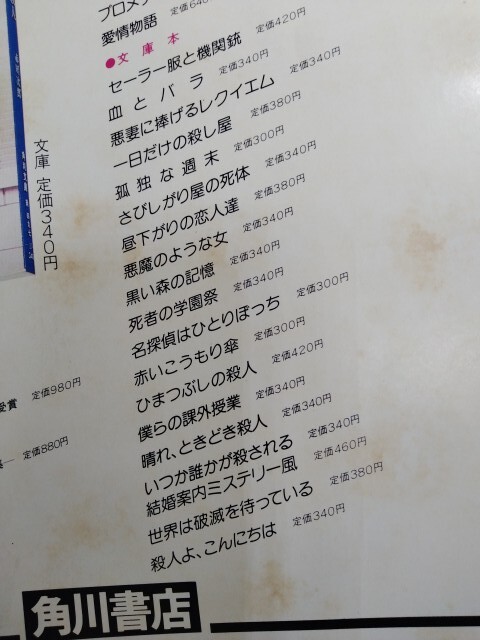 愛情物語 定価640
●文庫本
セーラー服と機関銃 定価420円
血とバラ 定価340円
悪妻に捧げるレクイエム 定価340円
一日だけの殺し屋 定価380円
孤独な週末 定価300円
さびしがり屋の死体 定価340円
昼下がりの恋人達 定価380円
悪魔のような女 定価340円
黒い森の記憶 定価340円
死者の学園祭 定価340円
名探偵はひとりぼっち 定価300円
赤いこうもり傘 定価300円
ひまつぶしの殺人 定価420円
僕らの課外授業 定価340円
晴れ、ときどき殺人 定価340円
いつか誰かが殺される 定価340円
結婚案内ミステリー風 定価460円
世界は破滅を待っている 定価380円
殺人よ、こんにちは 定価340円
文庫 定価340円
受賞 定価980円
定価880円
角川書店